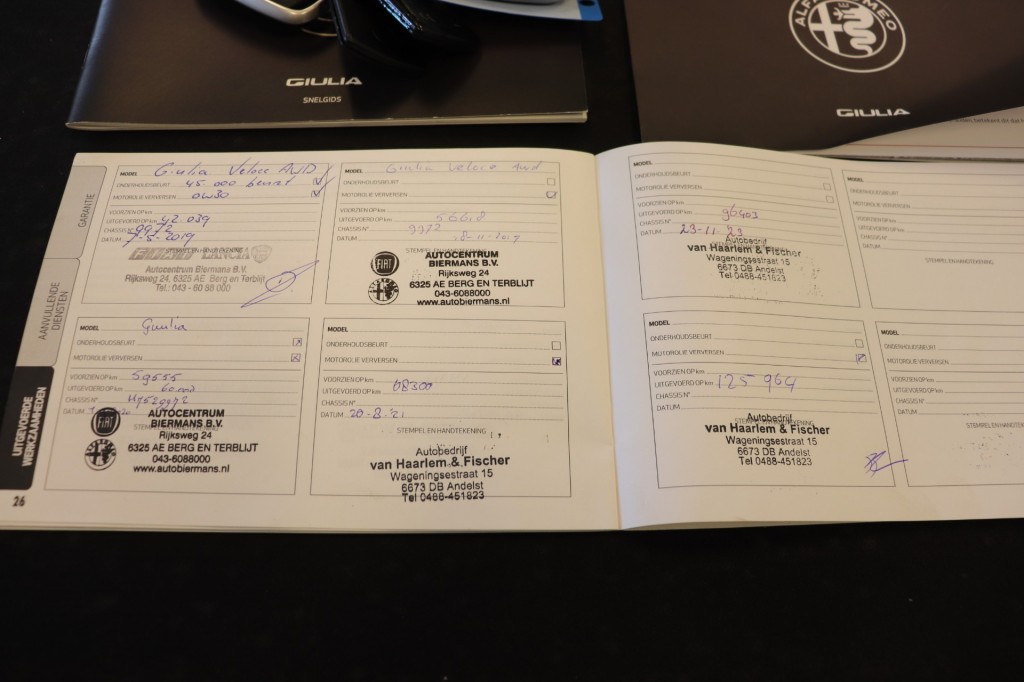 GIULIA
SNELGIDS
ALFA ROMEO
GIULIA
GARANTIE
AANVULLENDE
DIENSTEN
UITGEVOERDE
WERKZAAMHEDEN
26
MODEL Giulia Veloce AWD
ONDERHOUDSBEURT 45 000 beurt
MOTOROLIE VERVERSEN 0W30
VOORZIEN OP km
UITGEVOERD OP km 42 039
CHASSIS N° 9972
DATUM 7-5-2019
LANCIA
Autocentrum Biermans B.V.
Rijksweg 24, 6325 AE. Berg en Terblijt
Tel.: 043 - 60 88 000
MODEL Giulia Veloce AWD
ONDERHOUDSBEURT
MOTOROLIE VERVERSEN
VOORZIEN OP km
UITGEVOERD OP km
CHASSIS N° 9972
DATUM
STEMPEL EN HANDTEKENING
FIAT
AUTOCENTRUM
BIERMANS B.V.
Rijksweg 24
6325 AE BERG EN TERBLIJT
043-6088000
www.autobiermans.nl
MODEL Giulia
ONDERHOUDSBEURT
MOTOROLIE VERVERSEN
VOORZIEN OP km 59555
UITGEVOERD OP km 60.000
CHASSIS N°
DATUM
FIAT
AUTOCENTRUM
BIERMANS B.V.
Rijksweg 24
6325 AE BERG EN TERBLIJT
043-6088000
www.autobiermans.nl
MODEL
ONDERHOUDSBEURT
MOTOROLIE VERVERSEN
VOORZIEN OP km
UITGEVOERD OP km 68300
CHASSIS N°
DATUM 20-8-'21
STEMPEL EN HANDTEKENING
Autobedrijf
van Haarlem & Fischer
Wageningsestraat 15
6673 DB Andelst
Tel 0488-451823
MODEL
ONDERHOUDSBEURT
MOTOROLIE VERVERSEN
VOORZIEN OP km
UITGEVOERD OP km 96403
CHASSIS N°
DATUM 23-11-23
Autobedrijf
van Haarlem & Fischer
Wageningsestraat 15
6673 DB Andelst
Tel 0488-451823
MODEL
ONDERHOUDSBEURT
MOTOROLIE VERVERSEN
VOORZIEN OP km
UITGEVOERD OP km
CHASSIS N°
DATUM
STEMPEL EN HANDTEKENING
MODEL
ONDERHOUDSBEURT
MOTOROLIE VERVERSEN
VOORZIEN OP km
UITGEVOERD OP km 125 964
CHASSIS N°
DATUM
Autobedrijf
van Haarlem & Fischer
Wageningsestraat 15
6673 DB Andelst
Tel 0488-451823
MODEL
ONDERHOUDSBEURT
MOTOROLIE VERVERSEN
VOORZIEN OP km
UITGEVOERD OP km
CHASSIS N°
DATUM